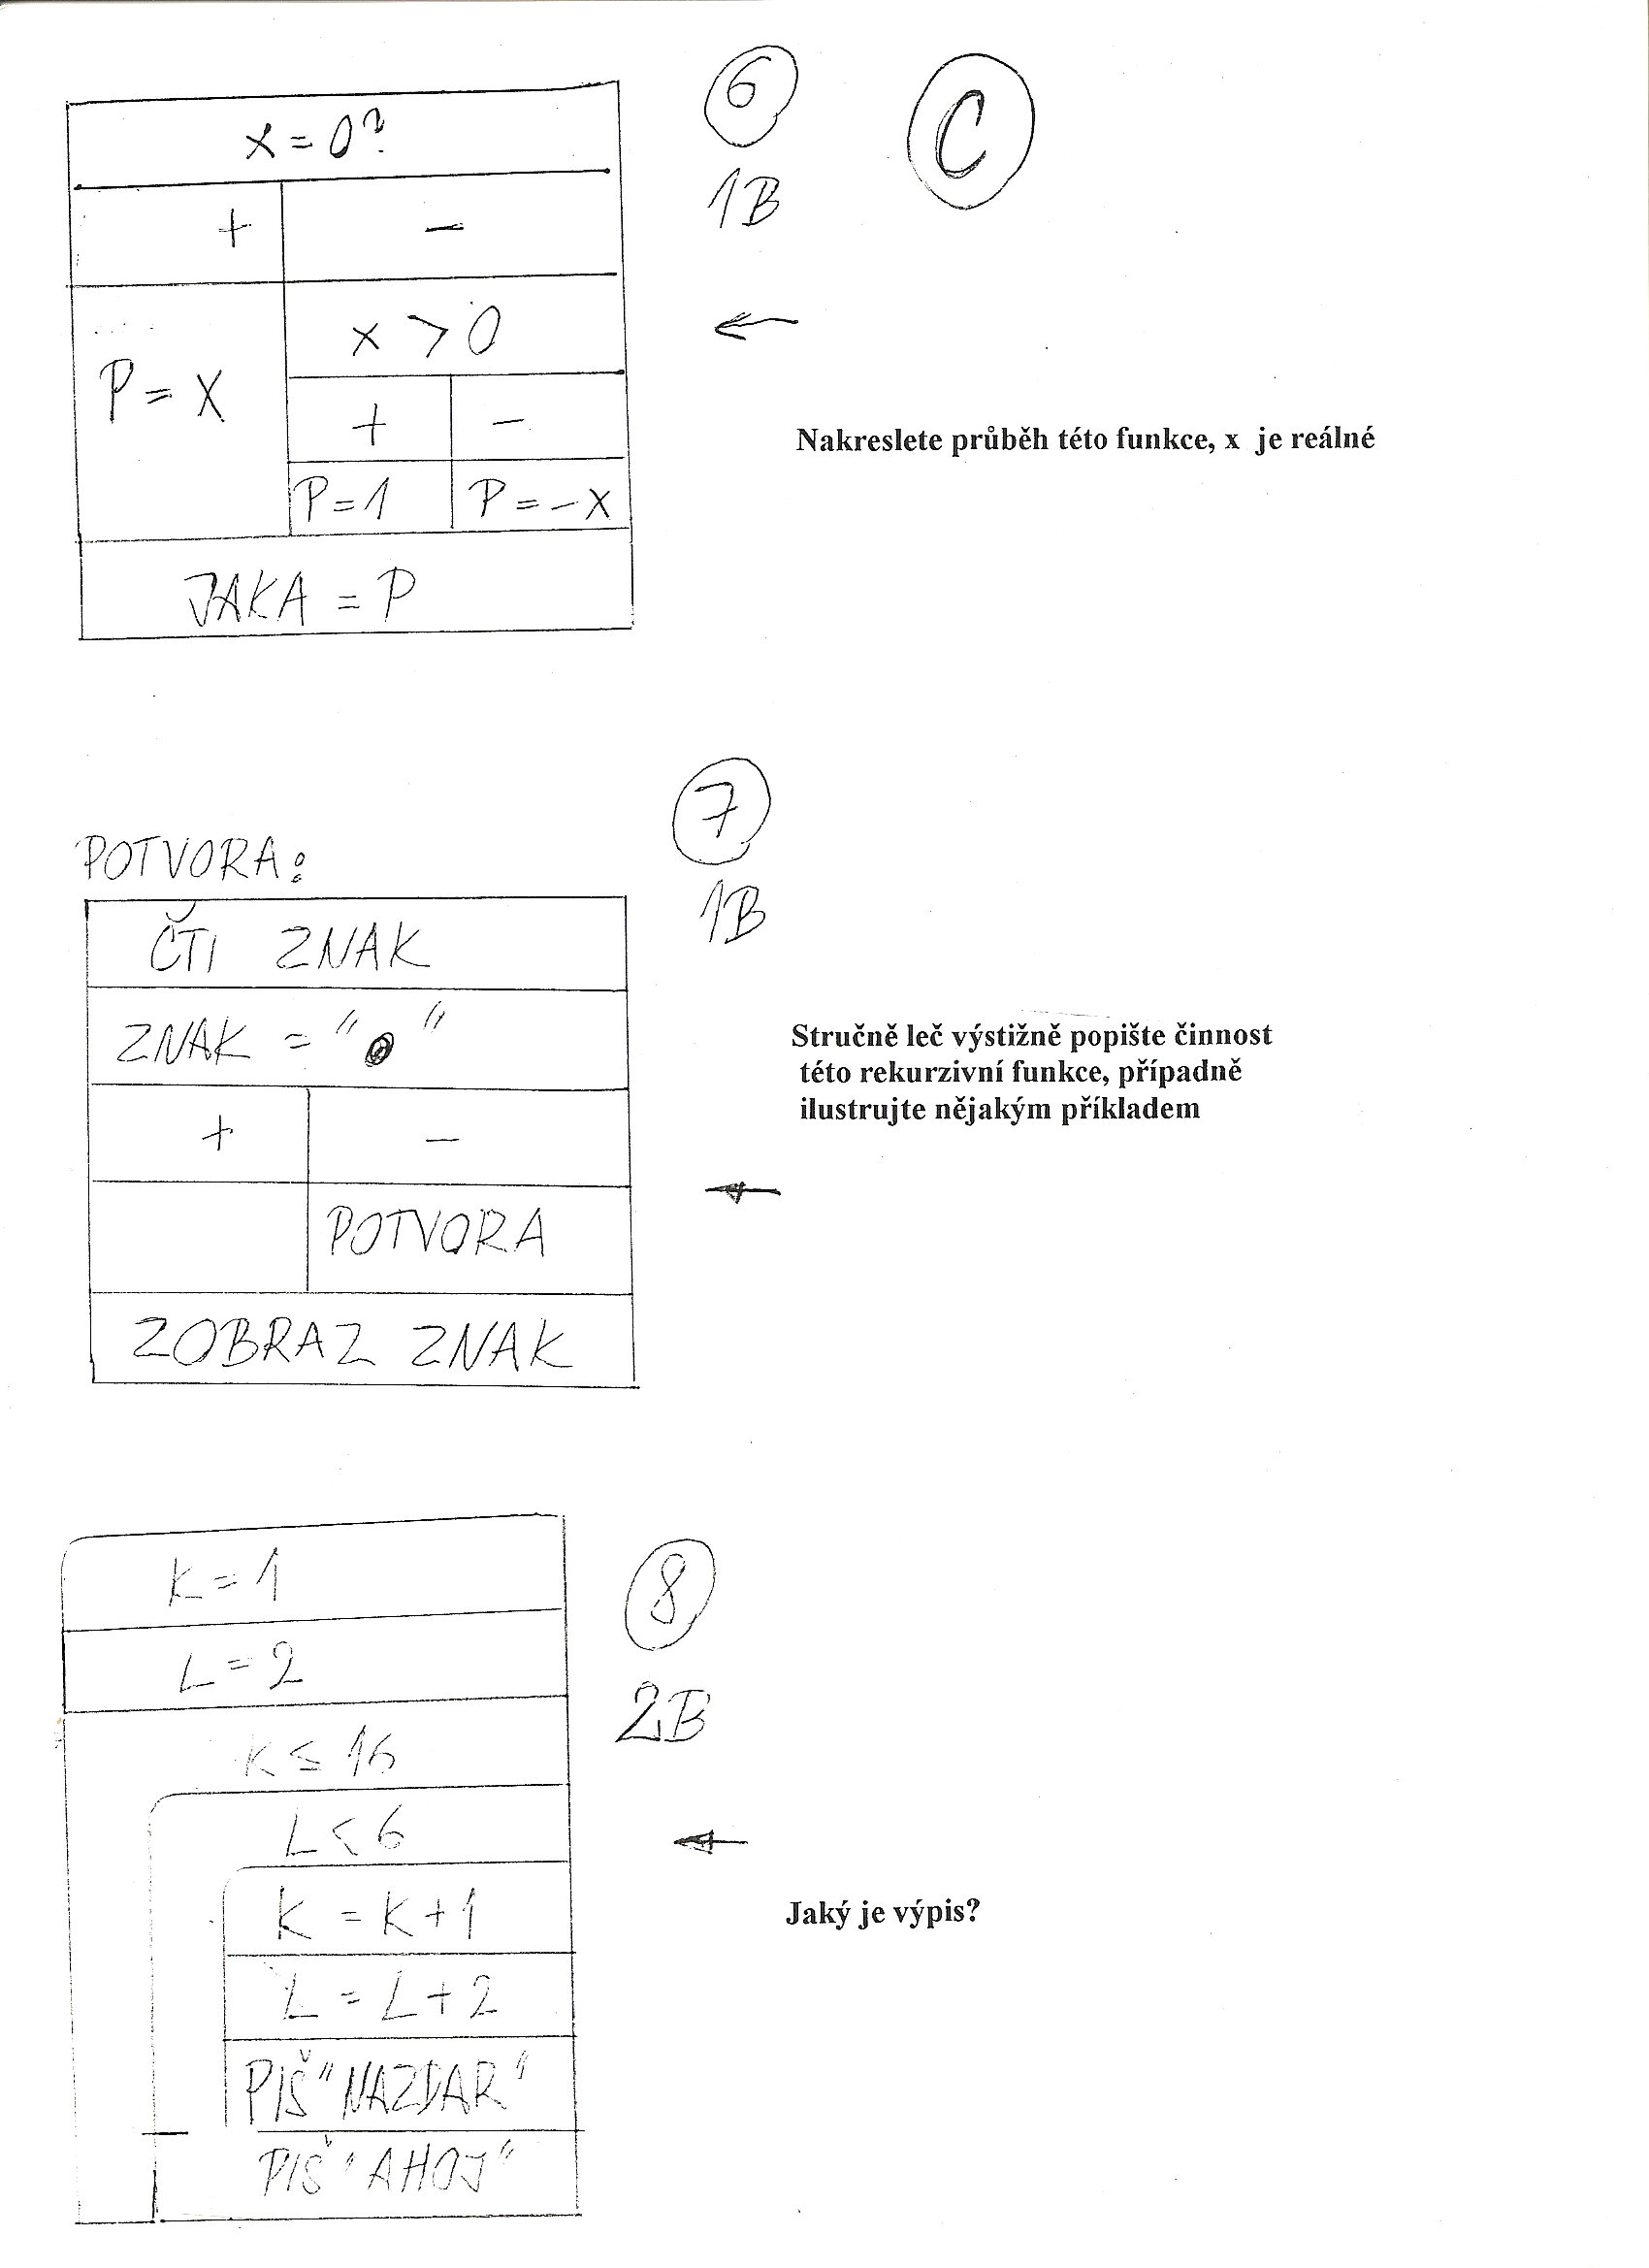 6
C
x = 0?
1B
+ -
x > 0
P = X
+ -
Nakreslete průběh této funkce, x je reálné
P = 1 P = -X
JAKA = P
7
POTVORA:
1B
ČTI ZNAK
ZNAK = " "
Stručně leč výstižně popište činnost
této rekurzivní funkce, případně
ilustrujte nějakým příkladem
+ -
POTVORA
ZOBRAZ ZNAK
8
K = 1
L = 2
2B
K ≤ 16
L < 6
K = K + 1
Jaký je výpis?
L = L + 2
PIŠ "NAZDAR"
PIŠ "AHOJ"